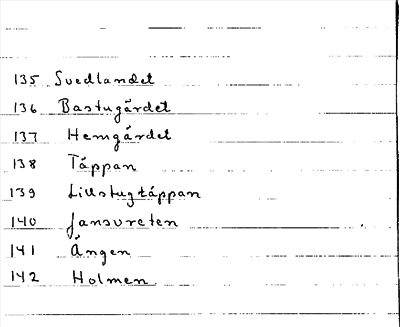 135 Svedlandet
136 Bastugärdet
137 Hemgärdet
138 Täppan
139 Lillstugtäppan
140 Jansvreten
141 Ängen
142 Holmen